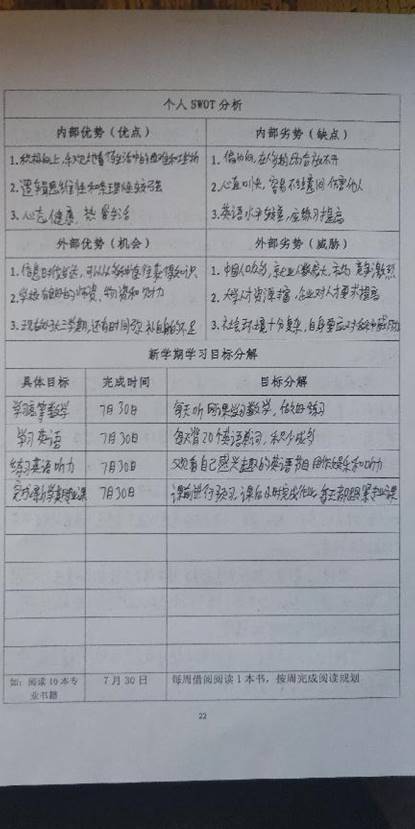 个人 SWOT 分析
内部优势（优点） 内部劣势（缺点）
1.积极向上，乐观地看待生活中的困难和挫折 1.偏内向，在人多的场合放不开
2.逻辑思维性和条理性较强 2.心直口快，容易不注意间伤害他人
3.心态健康，热爱生活 3.英语水平较差，应练习提高
外部优势（机会） 外部劣势（威胁）
1.信息时代发达，可以从多种途径获得知识 1.中国人口众多，就业人数庞大，市场竞争激烈
2.学校有良好的师资，物资和财力 2.大学人才资源丰富，企业对人才要求提高
3.现在的大三学期，还有时间弥补自身的不足 3.社会环境十分复杂，自身要应对各种威胁
新学期学习目标分解
具体目标 完成时间 目标分解
学习高等数学 7月30日 每天听网课学习数学，做好练习
学习英语 7月30日 每天背20个英语单词，积少成多
练习英语听力 7月30日 观看自己感兴趣的英语节目
7月30日 课前进行预习，课后及时完成作业
如：阅读10本专 7月30日 每周借阅阅读1本书，按周完成阅读规划
业书籍
22